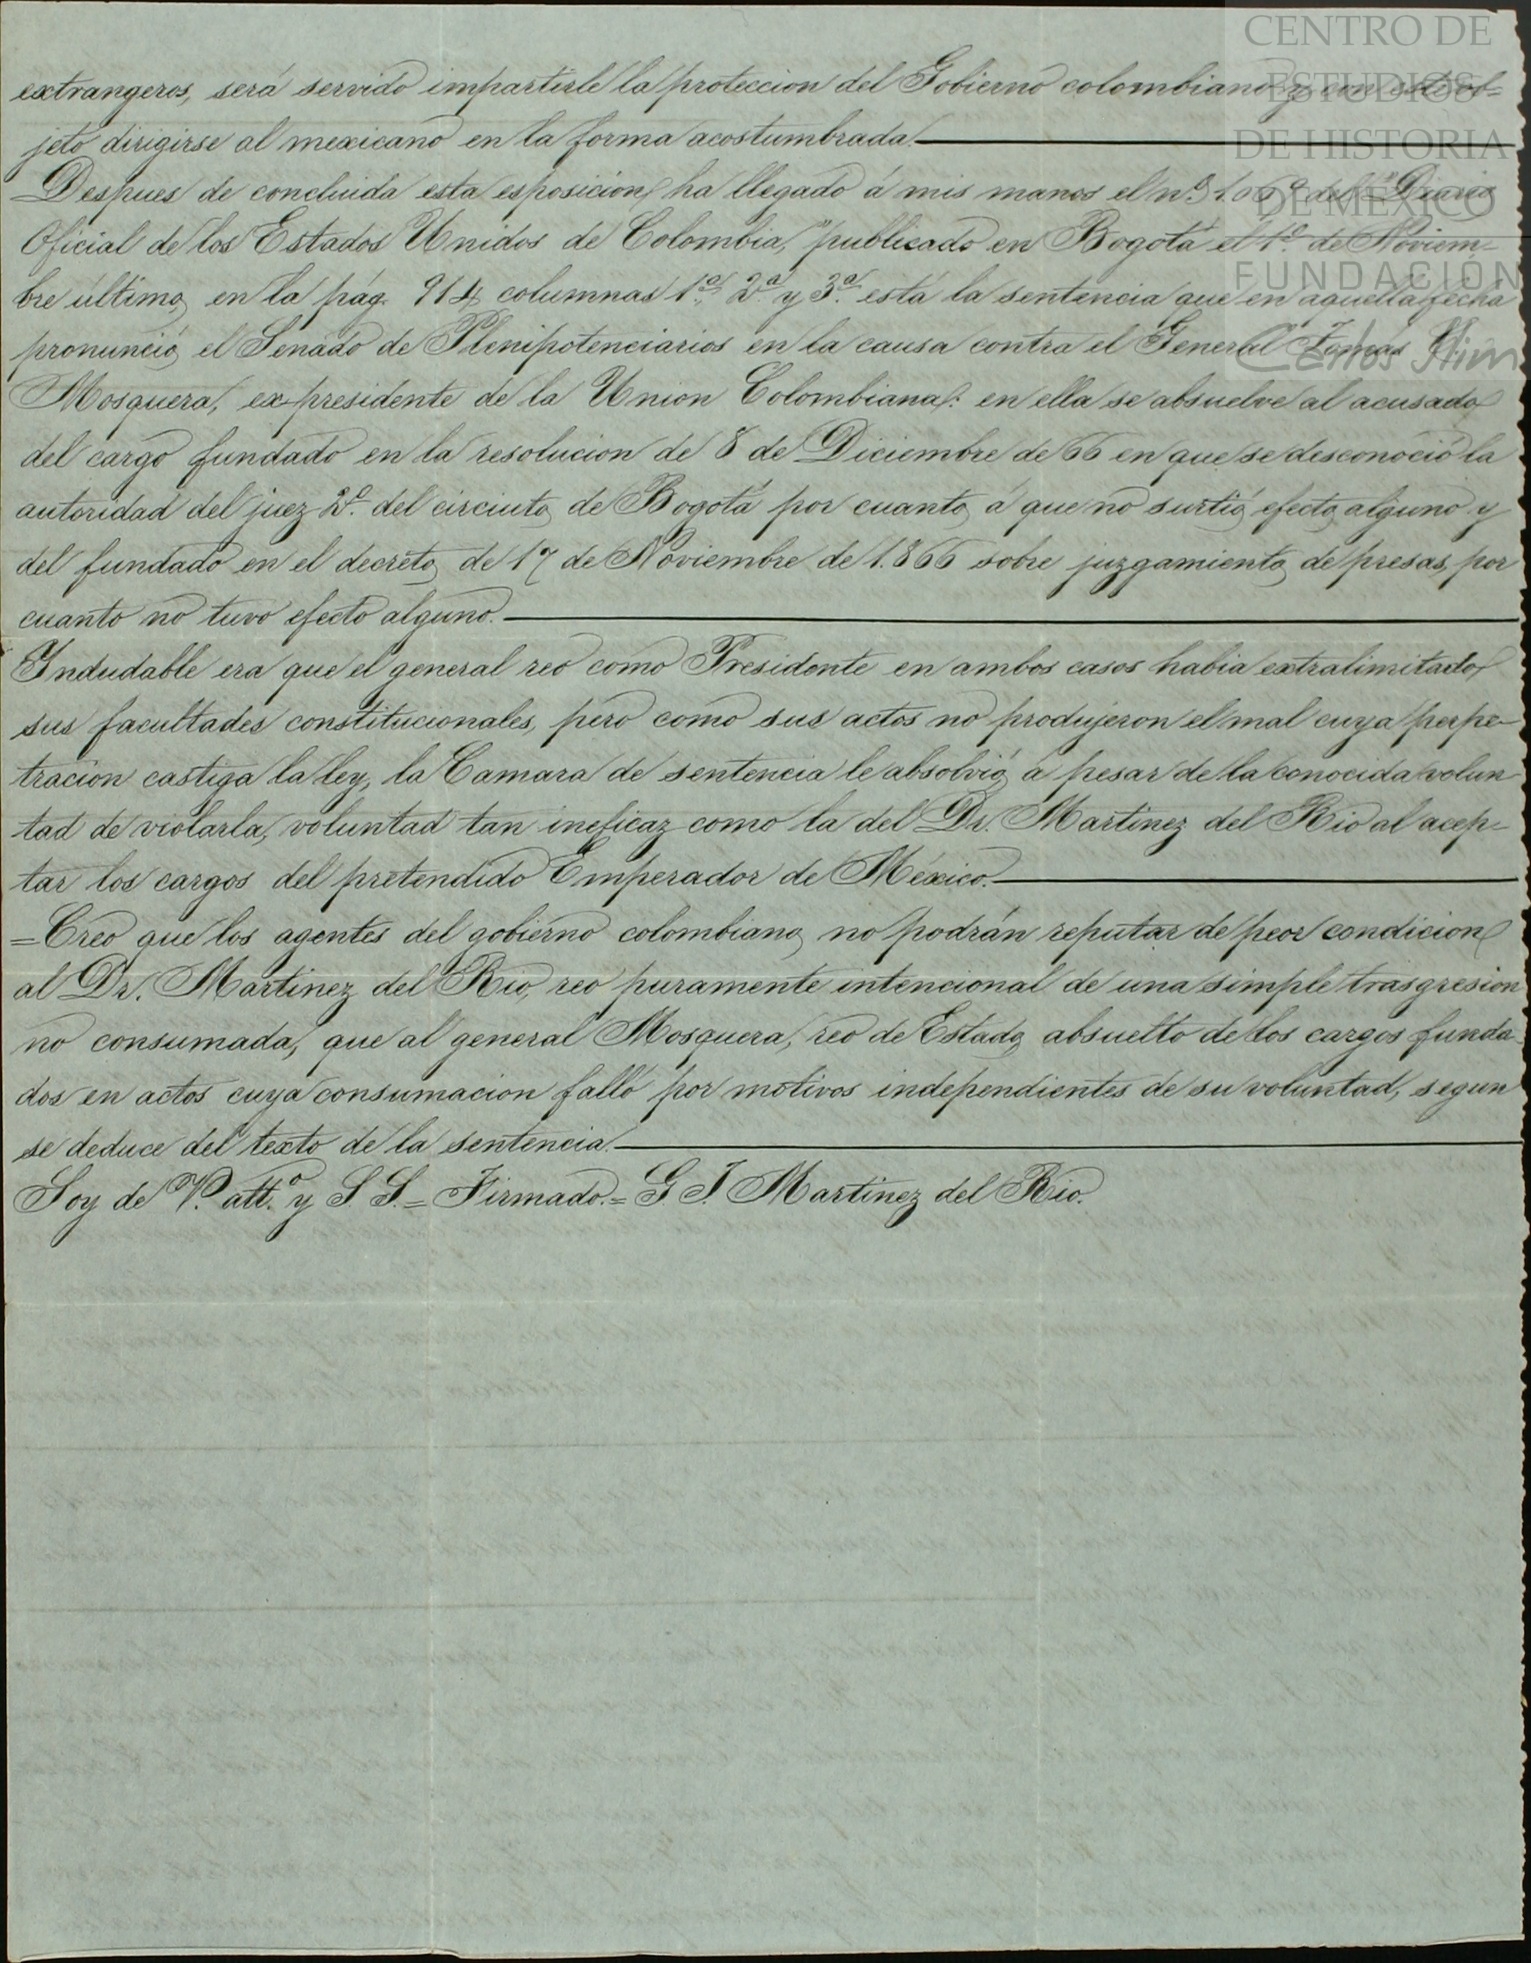 CENTRO DE
ESTUDIOS
DE HISTORIA
DE MÉXICO
FUNDACIÓN
Carlos Slim
extrangeros, será servido impartirle la proteccion del Gobierno colombiano y con este ob-
jeto dirigirse al mexicano en la forma acostumbrada.
Despues de concluida esta esposicion ha llegado á mis manos el n.º del "Diario
Oficial de los Estados Unidos de Colombia," publicado en Bogotá el 1.º de Noviem-
bre último, en la pág. 914, columnas 1.ª 2.ª y 3.ª está la sentencia que en aquella fecha
pronunció el Senado de Plenipotenciarios en la causa contra el General Tomás
Mosquera, ex-presidente de la Union Colombiana: en ella se absuelve al acusado
del cargo fundado en la resolucion de 8 de Diciembre de 66 en que se desconoció la
autoridad del juez 2.º del circuito de Bogotá por cuanto á que no surtió efecto alguno y
del fundado en el decreto de 17 de Noviembre de 1.866 sobre juzgamiento de presas, por
cuanto no tuvo efecto alguno.
Indudable era que el general reo como Presidente en ambos casos habia extralimitado
sus facultades constitucionales, pero como sus actos no produjeron el mal cuya perpe-
tracion castiga la ley, la Camara de sentencia le absolvió á pesar de la conocida volun-
tad de violarla, voluntad tan ineficaz como la del Dr. Martinez del Rio al acep-
tar los cargos del pretendido Emperador de México.
=Creo que los agentes del gobierno colombiano no podrán reputar de peor condicion
al Dr. Martinez del Rio, reo puramente intencional de una simple trasgresion
no consumada, que al general Mosquera, reo de Estado absuelto de los cargos funda-
dos en actos cuya consumacion falló por motivos independientes de su voluntad, segun
se deduce del texto de la sentencia.
Soy de V. att.º y S. S.= Firmado.= G. I. Martinez del Rio.